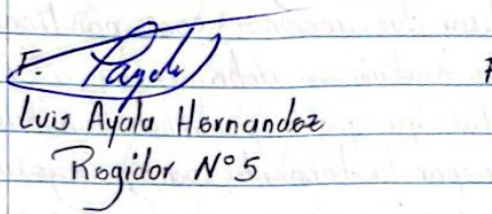 F.
Luis Ayala Hernandez
Regidor N°5